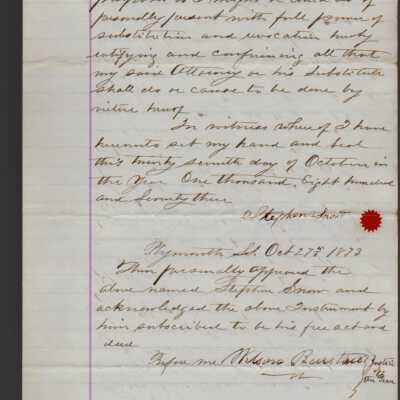 personally present with full power of
substitution and revocation hereby
ratifying and confirming all that
my said Attorney or his Substitute
shall do or cause to be done by
virtue hereof
In witness whereof I have
hereunto set my hand and seal
this twenty seventh day of October in
the Year One thousand, Eight hundred
and Seventy three
Stephen Snow
Plymouth Ss. Oct 27th 1873
Then personally appeared the
above named Stephen Snow and
acknowledged the above Instrument by
him subscribed to be his free act and
deed
Before me Wilson Justice